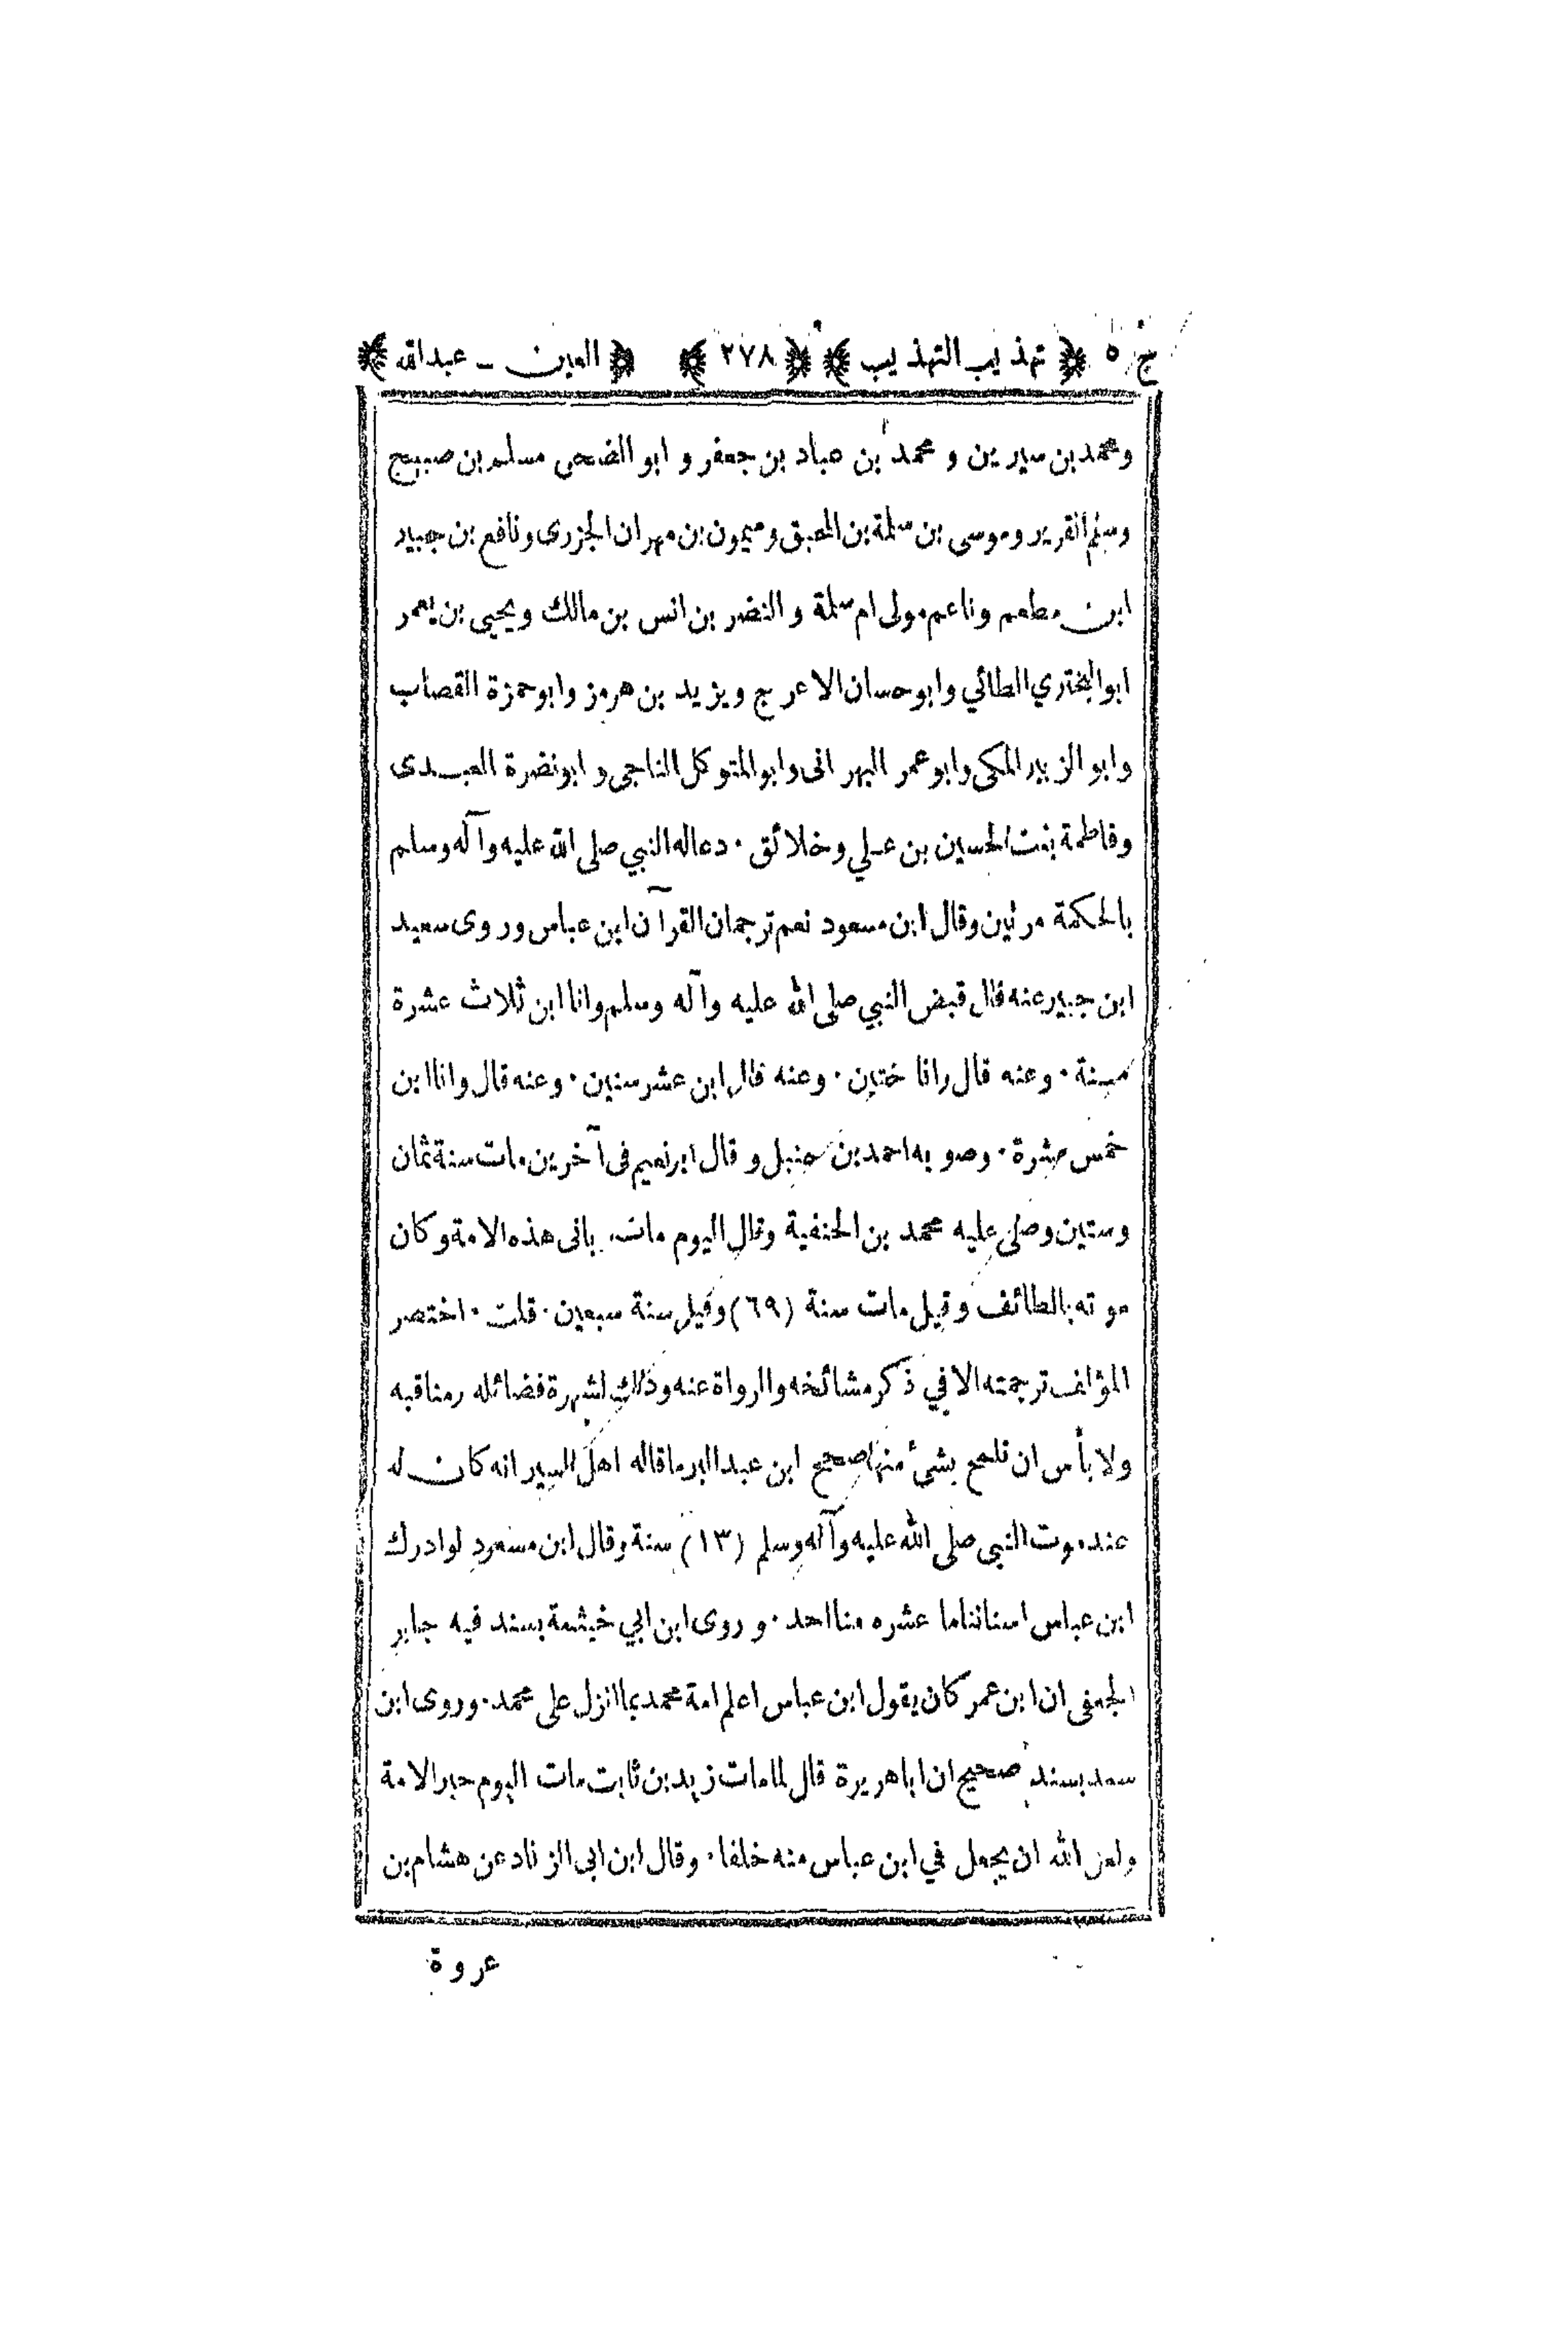 ج ٥ ﴿ تهذيب التهذيب ﴾ ﴿ ٢٧٨ ﴾ ﴿ العين ـ عبدالله ﴾
ومحمد بن سيرين و محمد بن عباد بن جعفر و ابو الضحى مسلم بن صبيح
ومسلم القرير وموسى بن سلمة بن المحبق وميمون بن مهران الجزرى ونافع بن جبير
ابن مطعم وناعم مولى ام سلمة و النضر بن انس بن مالك ويحيى بن يعمر
ابوالبختري الطائي وابوحسان الاعرج ويزيد بن هرمز وابوحمزة القصاب
وابو الزبير المكى وابوعمر البهرانى وابو المتوكل الناجى و ابونضرة العبدى
وفاطمة بنت الحسين بن علي وخلائق . دعاله النبي صلى الله عليه وآله وسلم
بالحكمة مرتين وقال ابن مسعود نعم ترجمان القرآن ابن عباس وروى سعيد
ابن جبير عنه قال قبض النبي صلى الله عليه وآله وسلم وانا ابن ثلاث عشرة
سنة . وعنه قال وانا ختين . وعنه قال ابن عشر سنين . وعنه قال وانا ابن
خمس عشرة . وصوبه احمد بن حنبل و قال ابونعيم فى آخرين مات سنة ثمان
وستين وصلى عليه محمد بن الحنفية وقال اليوم مات ربانى هذه الامة وكان
موته بالطائف وقيل مات سنة (٦٩) وقيل سنة سبعين . قلت . اختصر
المؤلف ترجمته الا في ذكر مشائخه والرواة عنه وذلك لشهرة فضائله ومناقبه
ولا بأس ان نلمح بشئ منها صحح ابن عبدالبر ماقاله اهل السير انه كان له
عند موت النبي صلى الله عليه وآله وسلم (١٣) سنة وقال ابن مسعود لوادرك
ابن عباس اسناننا ما عشره منا احد . و روى ابن ابي خيثمة بسند فيه جابر
الجعفى ان ابن عمر كان يقول ابن عباس اعلم امة محمد بما انزل على محمد . وروى ابن
سعد بسند صحيح ان اباهريرة قال لما مات زيد بن ثابت مات اليوم حبر الامة
ولعل الله ان يجعل في ابن عباس منه خلفا . وقال ابن ابى الزناد عن هشام بن
عروة